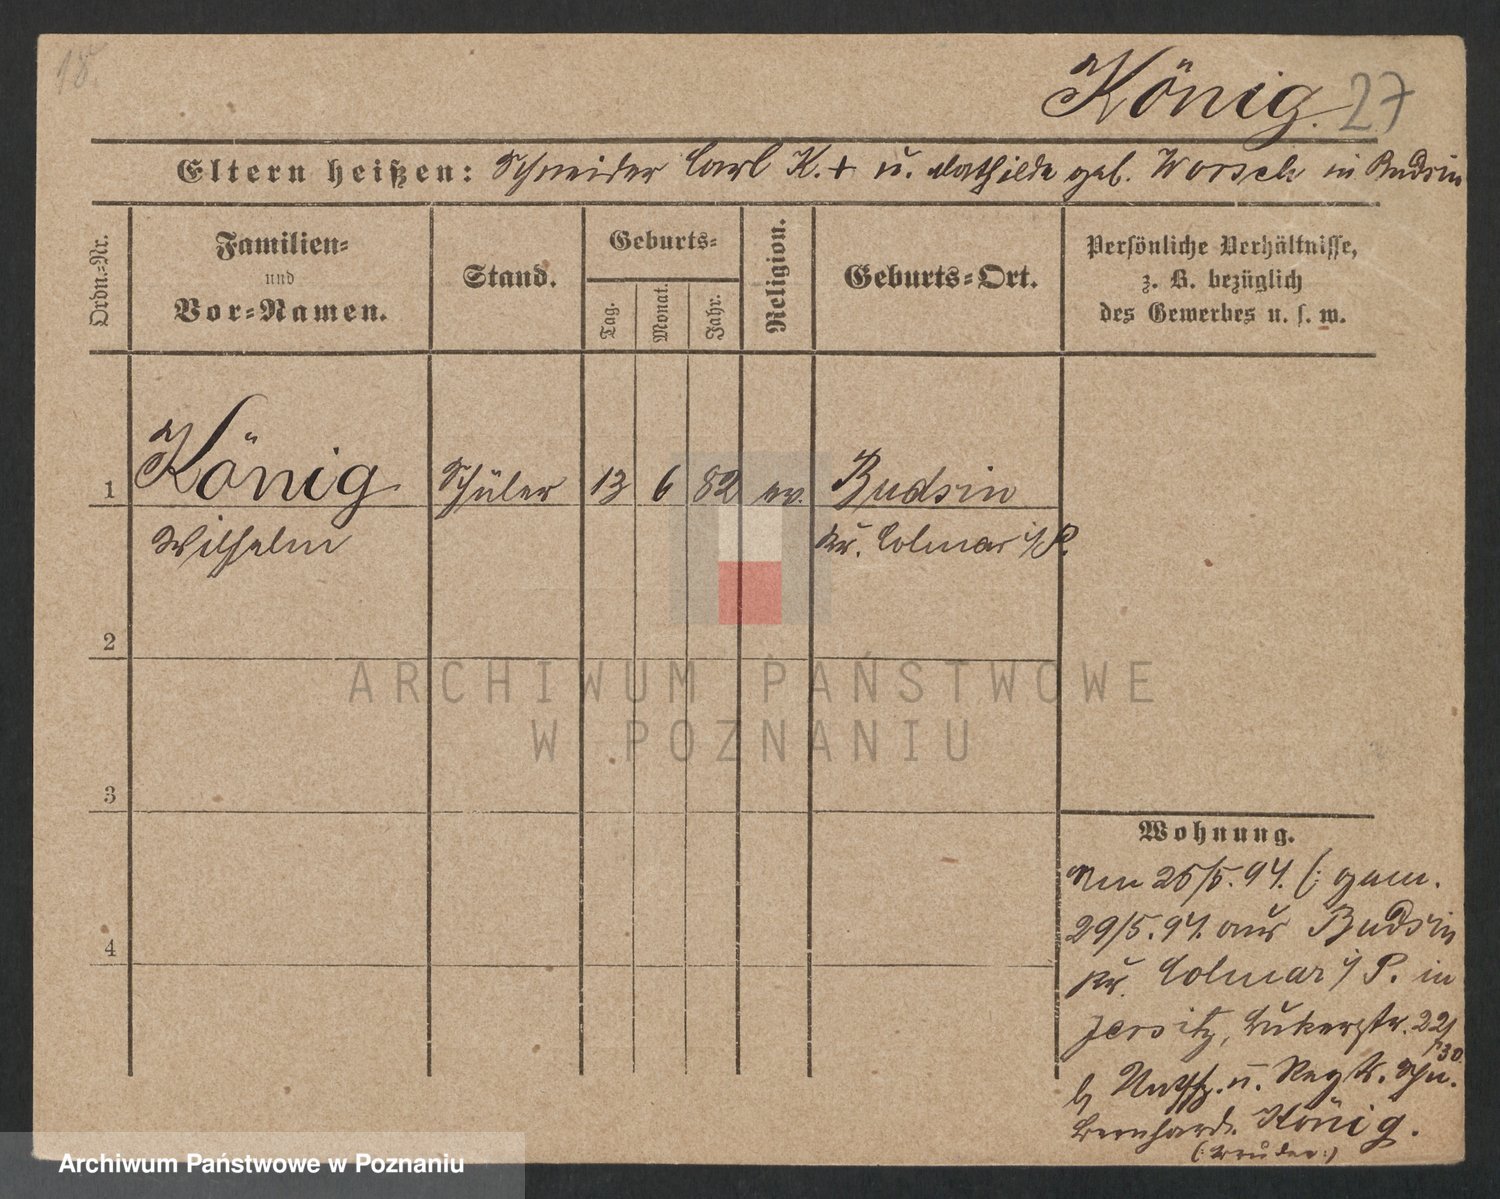 18.
König. 27
Eltern heißen: Schneider Carl K. + u. Mathilde geb. Worsch in Budsin
Ordn.-Nr.
Familien-
und
Vor-Namen.
Stand.
Geburts-
Tag.
Monat.
Jahr.
Religion.
Geburts-Ort.
Persönliche Verhältnisse,
z. B. bezüglich
des Gewerbes u. s. w.
1 König Schüler 13 6 82 ev. Budsin
Wilhelm Kr. Colmar i/P.
2
3
4
Wohnung.
Am 26/5.94. (: gem.
29/5.94. aus Budsin
Kr. Colmar i/ P. in
Jersitz, 22/
b/ u.
Bernhard König.
(:Bruder:)
ARCHIWUM PAŃSTWOWE
W POZNANIU
Archiwum Państwowe w Poznaniu